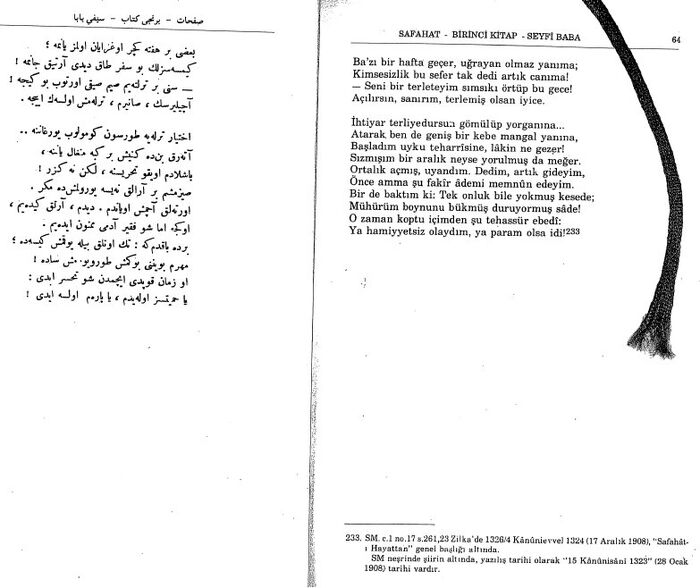 صفحات - برنجى كتاب - سيفى بابا
بعضى بر هفته كچر اوغرايان اولمز يانمه ؛
كيمسه‌سزلك بو سفر طاق ديدى آرتيق جانمه !
— سنى بر ترله‌ته‌يم صيم صيقى اورتوب بو كيجه !
آچيليرسك ، صانيرم ، ترله‌مش اولسه‌ك اييجه .
اختيار ترله‌يه طورسون كومولوب يورغاننه ..
آته‌رق بن‌ده كنيش بر كبه منغال ياننه ،
باشلادم اويقو تحريسنه ، لكن نه كزر !
صيزمشم بر آرالق نه‌يسه يورولمش‌ده مكر .
اورته‌لق آچمش اوياندم . ديدم ، آرتق كيده‌يم ،
اوكجه اما شو فقير آدمى ممنون ايده‌يم .
برده باقدم‌كه : تك اونلق بيله يوقمش كيسه‌ده ؛
مهرم بوينى بوكمش طوروبورمش ساده !
او زمان قوپدى ايچمدن شو تحسر ابدى :
يا حميتسز اوله‌يدم ، يا پاره‌م اولسه ايدى !
SAFAHAT - BİRİNCİ KİTAP - SEYFİ BABA
64
Ba'zı bir hafta geçer, uğrayan olmaz yanıma;
Kimsesizlik bu sefer tak dedi artık canıma!
— Seni bir terleteyim sımsıkı örtüp bu gece!
Açılırsın, sanırım, terlemiş olsan iyice.
İhtiyar terliyedursun gömülüp yorganına...
Atarak ben de geniş bir kebe mangal yanına,
Başladım uyku teharrîsine, lâkin ne gezer!
Sızmışım bir aralık neyse yorulmuş da meğer.
Ortalık açmış, uyandım. Dedim, artık gideyim,
Önce amma şu fakîr âdemi memnûn edeyim.
Bir de baktım ki: Tek onluk bile yokmuş kesede;
Mühürüm boynunu bükmüş duruyormuş sâde!
O zaman koptu içimden şu tehassür ebedî:
Ya hamiyyetsiz olaydım, ya param olsa idi!233
233. SM. c.1 no.17 s.261,23 Zilka'de 1326/4 Kânûnievvel 1324 (17 Aralık 1908), "Safahât-
ı Hayattan" genel başlığı altında.
SM neşrinde şiirin altında, yazılış tarihi olarak "15 Kânûnisâni 1323" (28 Ocak
1908) tarihi vardır.